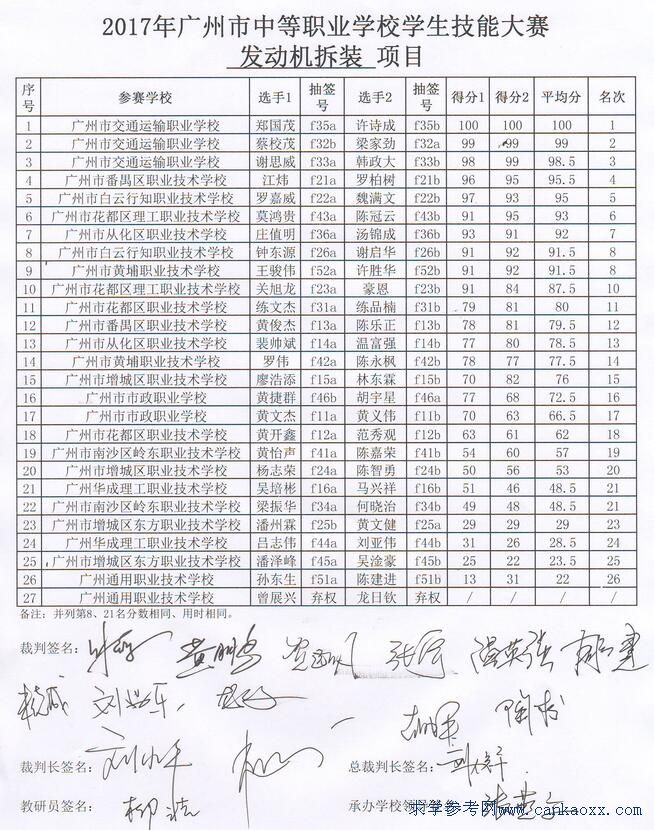 2017年广州市中等职业学校学生技能大赛
发动机拆装 项目
序号 参赛学校 选手1 抽签号 选手2 抽签号 得分1 得分2 平均分 名次
1 广州市交通运输职业学校 郑国茂 f35a 许诗成 f35b 100 100 100 1
2 广州市交通运输职业学校 蔡校茂 f32b 梁家劲 f32a 99 99 99 2
3 广州市交通运输职业学校 谢思威 f33a 韩政大 f33b 98 99 98.5 3
4 广州市番禺区职业技术学校 江炜 f21a 罗柏树 f21b 96 95 95.5 4
5 广州市白云行知职业技术学校 罗嘉威 f22a 魏满文 f22b 97 93 95 5
6 广州市花都区理工职业技术学校 莫鸿贵 f43a 陈冠云 f43b 91 95 93 6
7 广州市从化区职业技术学校 庄值明 f36a 汤锦成 f36b 93 91 92 7
8 广州市白云行知职业技术学校 钟东源 f26a 谢启华 f26b 91 92 91.5 8
9 广州市黄埔职业技术学校 王骏伟 f52a 许胜华 f52b 91 92 91.5 8
10 广州市花都区理工职业技术学校 关旭龙 f23a 豪恩 f23b 91 84 87.5 10
11 广州市花都区职业技术学校 练文杰 f31a 练品楠 f31b 79 81 80 11
12 广州市番禺区职业技术学校 黄俊杰 f13a 陈乐正 f13b 78 81 79.5 12
13 广州市从化区职业技术学校 裴帅斌 f14a 温富强 f14b 77 80 78.5 13
14 广州市黄埔职业技术学校 罗伟 f42a 陈永枫 f42b 78 77 77.5 14
15 广州市增城区职业技术学校 廖浩添 f15a 林东霖 f15b 70 82 76 15
16 广州市市政职业学校 黄捷群 f46b 胡宇星 f46a 77 68 72.5 16
17 广州市市政职业学校 黄文杰 f11a 黄义伟 f11b 70 63 66.5 17
18 广州市花都区职业技术学校 黄开鑫 f12a 范秀观 f12b 63 61 62 18
19 广州市南沙区岭东职业技术学校 黄怡声 f41a 陈嘉荣 f41b 54 60 57 19
20 广州市增城区职业技术学校 杨志荣 f24a 陈智勇 f24b 50 56 53 20
21 广州华成理工职业技术学校 吴培彬 f16a 马兴祥 f16b 51 46 48.5 21
22 广州市南沙区岭东职业技术学校 梁振华 f34a 何晓治 f34b 49 48 48.5 21
23 广州市增城区东方职业技术学校 潘州霖 f25b 黄文健 f25a 29 29 29 23
24 广州华成理工职业技术学校 吕志伟 f44a 刘亚伟 f44b 31 26 28.5 24
25 广州市增城区东方职业技术学校 潘泽峰 f45a 吴淦豪 f45b 25 22 23.5 25
26 广州通用职业技术学校 孙东生 f51a 陈建进 f51b 13 31 22 26
27 广州通用职业技术学校 曾展兴 弃权 龙日钦 弃权 / / / /
备注：并列第8、21名分数相同、用时相同。
裁判签名：
裁判长签名： 总裁判长签名：
教研员签名： 承办学校领
求学参考网 www.cankaoxx.com